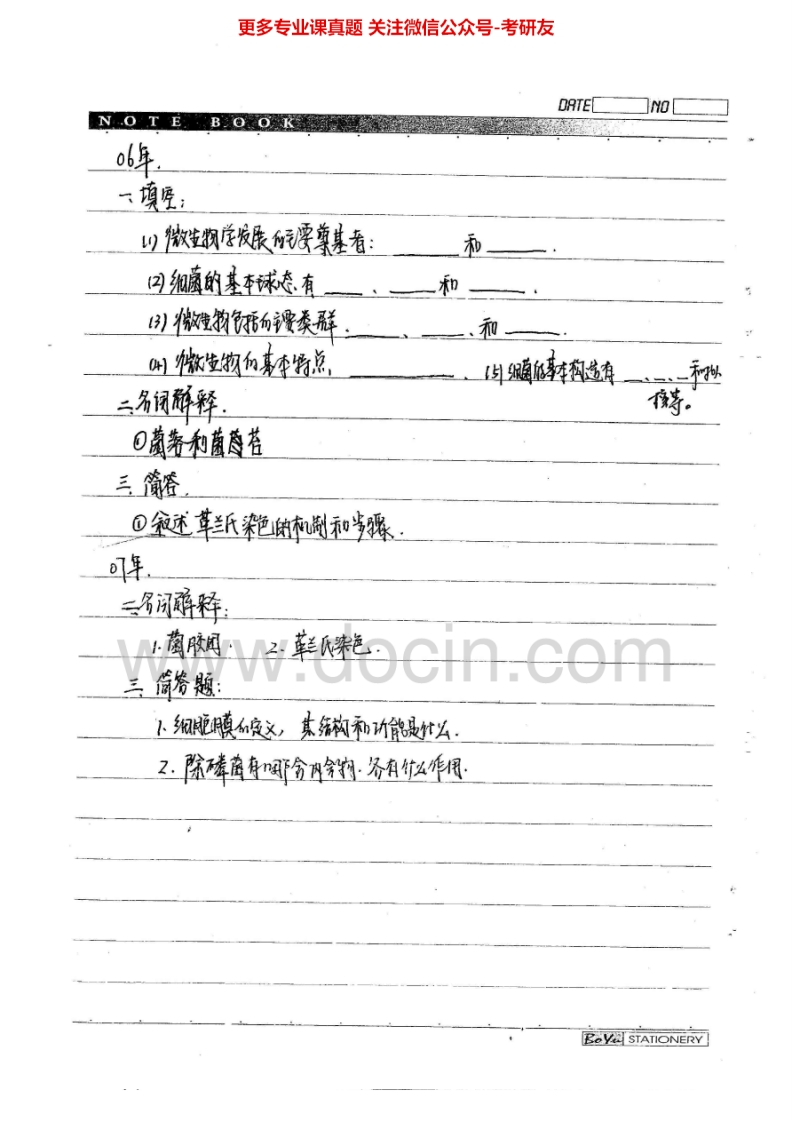 更多专业课真题 关注微信公众号-考研友
DATE NO
NOTE BOOK
06年.
一、填空:
(1) 微生物学发展的主要奠基者: ______ 和 ______ .
(2) 细菌的基本球态有 ____ 、 ____ 和 ____ .
(3) 微生物包括的主要类群. ____ 、 ____ 、和 ____ .
(4) 微生物的基本特点, ________ . (5) 细菌的基本构造有 __、__、__和拟
核等。
二、名词解释.
①菌落和菌苔
三. 简答.
①叙述革兰氏染色的机制和步骤.
07年.
二名词解释:
1. 菌胶团. 2. 革兰氏染色.
三. 简答题:
1. 细胞膜的定义, 其结构和功能是什么.
2. 除磷菌有哪些内含物. 各有什么作用.
www.docin.com
BoYu STATIONERY